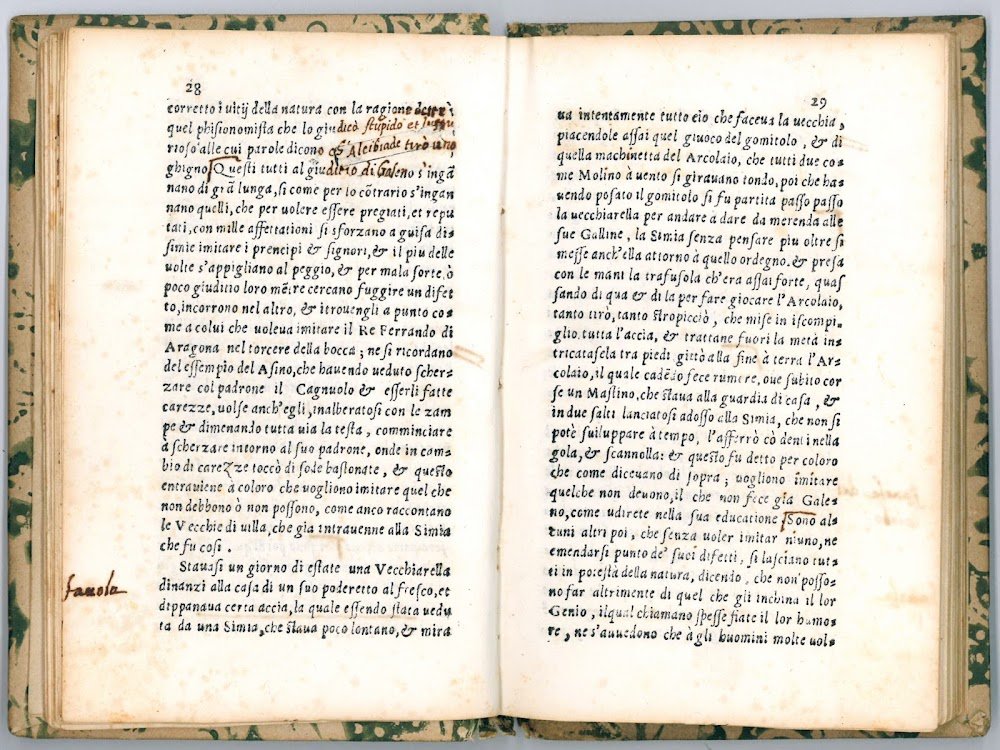 28
corretto i uitij della natura con la ragione
quel phisionomista che lo giudicò stupido et
rioso alle cui parole dicono che Alcibiade tirò uno
ghigno. Questi tutti al giuditio di Galeno s'ingã
nano di grã lunga, si come per lo cõtrario s'ingan
nano quelli, che per uolere essere pregiati, et repu
tati, con mille affettationi si sforzano a guisa di
simie imitare i prencipi & signori, & il piu delle
uolte s'appigliano al peggio, & per mala sorte, ò
poco giuditio loro mẽtre cercano fuggire un difet
to, incorrono nel altro, & itrouengli a punto co=
me a colui che uoleua imitare il Re Ferrando di
Aragona nel torcere della bocca; ne si ricordano
del essempio del Asino, che hauendo ueduto scher=
zare col padrone il Cagnuolo & esserli fatte
carezze, uolse anch'egli, inalberatosi con le zam
pe & dimenando tutta uia la testa, comminciare
à scherzare intorno al suo padrone, onde in cam=
bio di carezze toccò di sode bastonate, & questo
entrauiene à coloro che uogliono imitare quel che
non debbono ò non possono, come anco raccontano
le Vecchie di uilla, che gia intrauenne alla Simia
che fu cosi.
Stauasi un giorno di estate una Vecchiarella
fauola
dinanzi alla casa di un suo poderetto al fresco, et
dippanaua certa accia, la quale essendo stata uedu
ta da una Simia, che staua poco lontano, & mira
29
ua intentamente tutto cio che faceua la uecchia,
piacendole assai quel giuoco del gomitolo, & di
quella machinetta del Arcolaio, che tutti due co=
me Molino à uento si girauano tondo, poi che ha=
uendo posato il gomitolo si fu partita passo passo
la uecchiarella per andare à dare da merenda alle
sue Galline, la Simia senza pensare piu oltre si
messe anch'ella attorno à quello ordegno. & presa
con le mani la trafusola ch'era assai forte, quas
sando di qua & di la per fare giocare l'Arcolaio,
tanto tirò, tanto stropicciò, che mise in iscompi=
glio tutta l'accia, & trattane fuori la metà in=
tricatasela tra piedi gittò alla fine à terra l'Ar=
colaio, il quale cadẽdo fece rumore, oue subito cor
se un Mastino, che staua alla guardia di casa, &
in due salti lanciatosi adosso alla Simia, che non si
potè suiluppare à tempo, l'afferrò cò denti nella
gola, & scannolla: & questo fu detto per coloro
che come diceuano di sopra; uogliono imitare
quelche non deuono, il che non fece gia Gale=
no, come udirete nella sua educatione. Sono al=
cuni altri poi, che senza uoler imitar niuno, ne
emendarsi punto de' suoi difetti, si lasciano tut=
ti in potestà della natura, dicendo, che non posso=
no far altrimente di quel che gli inchina il lor
Genio, ilqual chiamano spesse fiate il lor humo=
re, ne s'auuedono che à gli huomini molte uol=